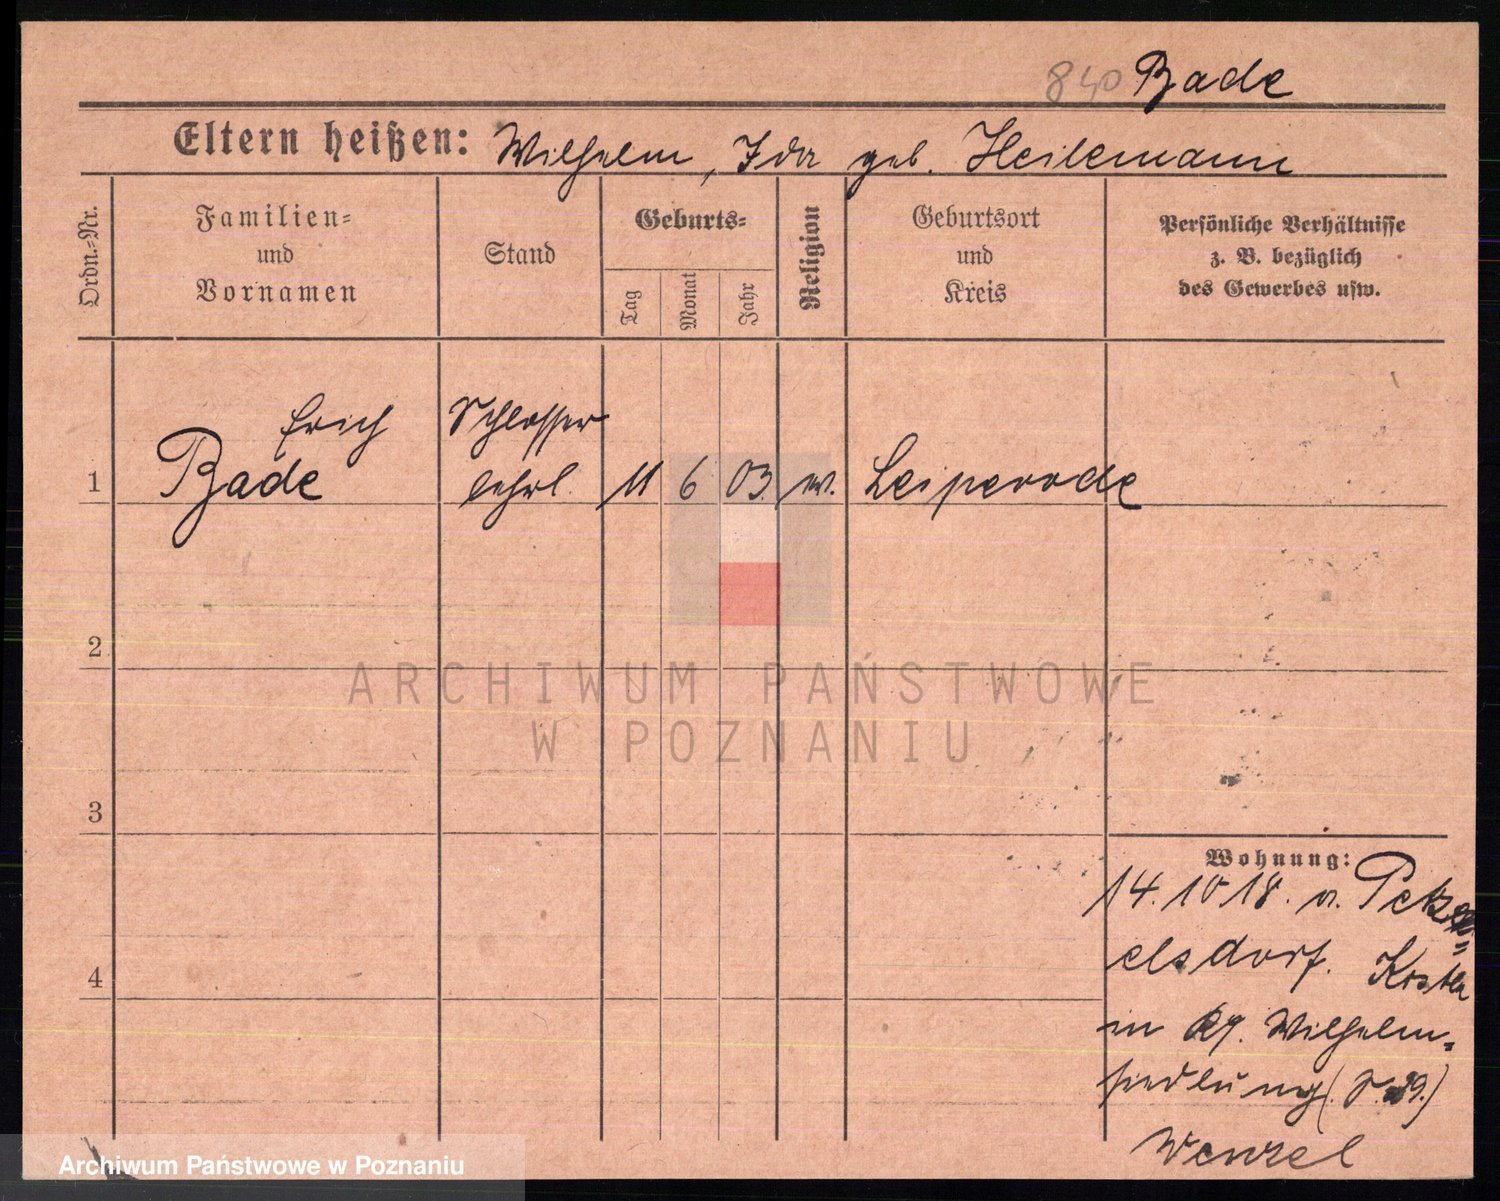 840 Bade
Eltern heißen: Wilhelm, Ida geb. Heilemann
Ordn.-Nr.
Familien-
und
Vornamen
Stand
Geburts-
Tag
Monat
Jahr
Religion
Geburtsort
und
Kreis
Persönliche Verhältnisse
z. B. bezüglich
des Gewerbes usw.
Erich Schlosser
1 Bade lehrl. 11 6 03. ev. Leiperode
2
3
4
Wohnung:
14. 10 18. n.
elsdorf.
in Wilhelm-
siedlung (
Wenzel
ARCHIWUM PAŃSTWOWE
W POZNANIU
Archiwum Państwowe w Poznaniu